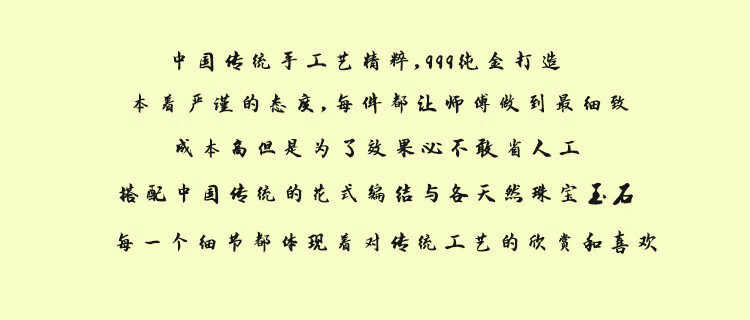 中国传统手工艺精粹,999纯金打造
本着严谨的态度,每件都让师傅做到最细致
成本高但是为了效果必不敢省人工
搭配中国传统的花式编结与各天然珠宝玉石
每一个细节都体现着对传统工艺的欣赏和喜欢